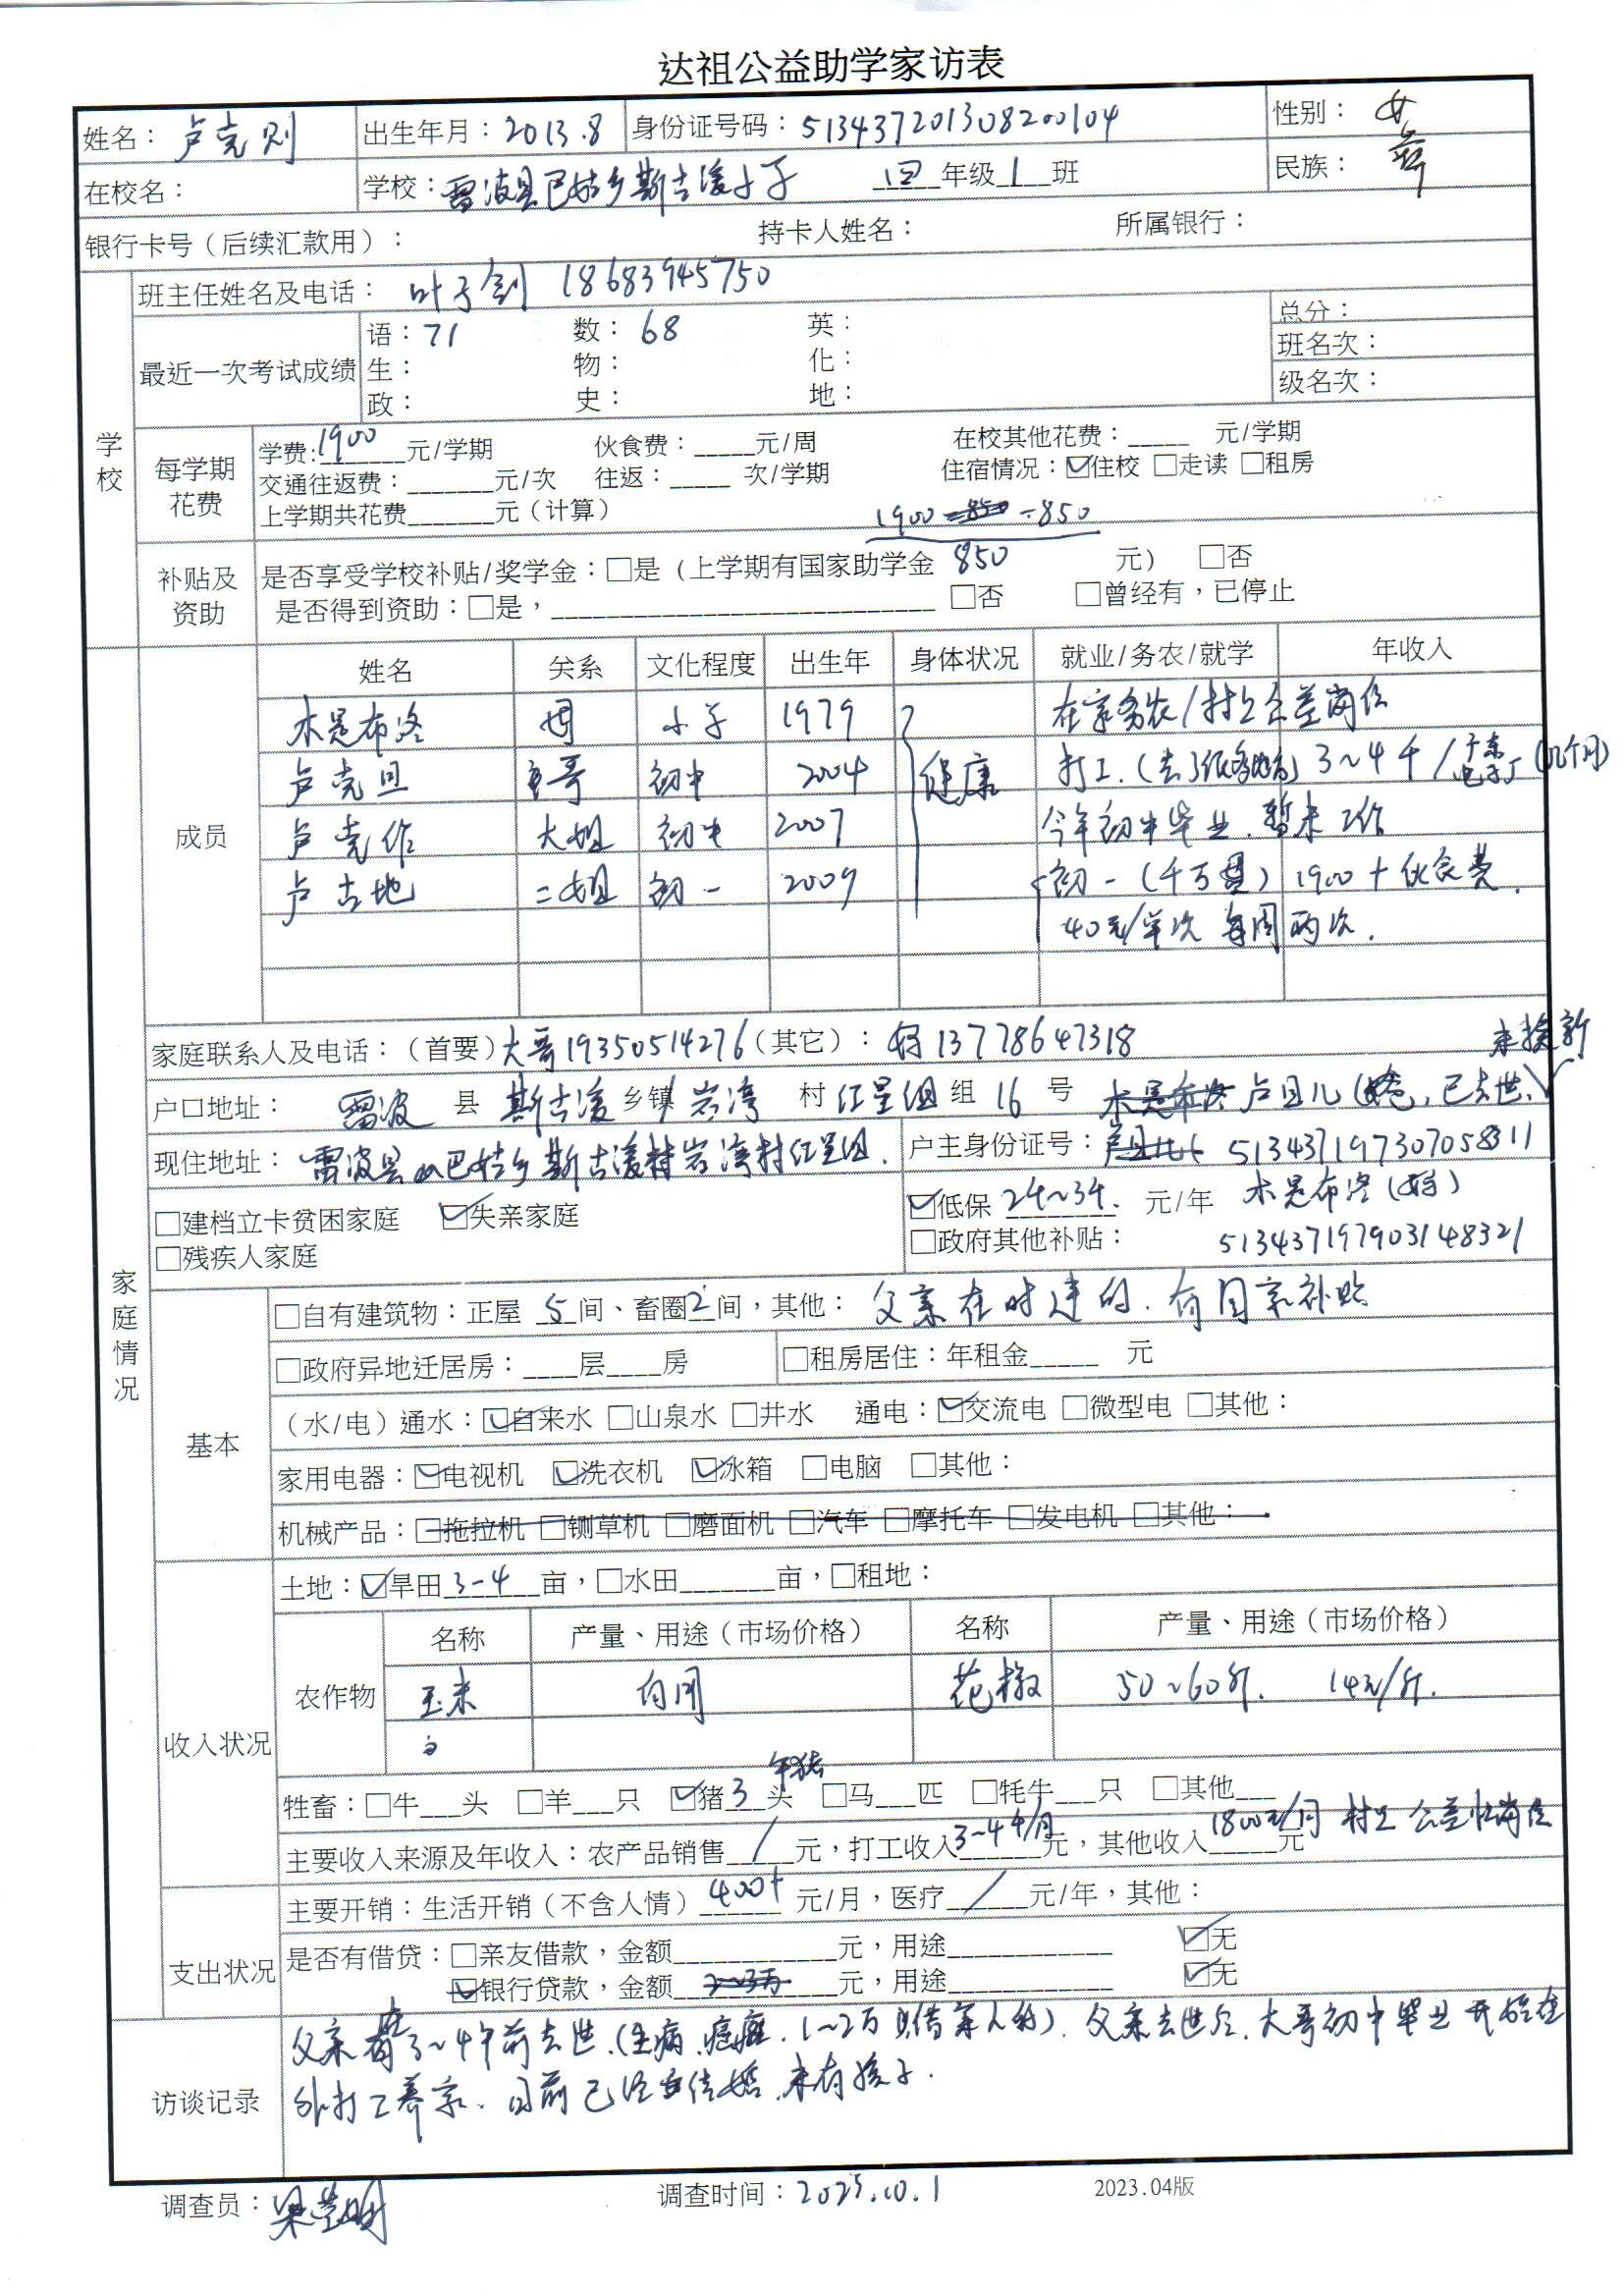 达祖公益助学家访表
姓名： 卢克则 出生年月：2013.8 身份证号码：513437201308200104 性别： 女
在校名： 学校：雷波县巴姑乡斯古溪小学 四年级1班 民族： 彝
银行卡号（后续汇款用）： 持卡人姓名： 所属银行：
学校
班主任姓名及电话： 叶子剑 18683945750
最近一次考试成绩 语：71 数：68 英： 总分：
生： 物： 化： 班名次：
政： 史： 地： 级名次：
每学期花费 学费：1900元/学期 伙食费：_____元/周 在校其他花费：_____ 元/学期
交通往返费：_______元/次 往返：_____ 次/学期 住宿情况：☑住校 □走读 □租房
上学期共花费_______元（计算） 1900 -850
补贴及资助 是否享受学校补贴/奖学金：□是（上学期有国家助学金 850 元） □否
是否得到资助：□是，____________________ □否 □曾经有，已停止
家庭情况
成员 姓名 关系 文化程度 出生年 身体状况 就业/务农/就学 年收入
木是布洛 母 小学 1979 健康 在家务农/村上公益岗位
卢克旦 哥 初中 2004 打工.（去了很多地方）3~4千/广东电子厂（几个月）
卢克作 大姐 初中 2007 今年初中毕业.暂未工作
卢古地 二姐 初一 2009 初一（千万贯）1900+伙食费.
40元/单次 每周两次.
家庭联系人及电话：（首要）大哥19350514276（其它）： 妈13778647318
未换新
户口地址： 雷波 县 斯古溪 乡镇 岩湾 村 红星组 组 16 号 卢旦儿（爸，已去世）
现住地址： 雷波县巴姑乡斯古溪村岩湾村红星组. 户主身份证号： 513437197307058311
□建档立卡贫困家庭 ☑失亲家庭 ☑低保 2千~3千. 元/年 木是布洛（妈）
□残疾人家庭 □政府其他补贴： 513437197903148321
基本 □自有建筑物：正屋 5间、畜圈2间，其他： 父亲在时建的.有国家补贴
□政府异地迁居房：____层____房 □租房居住：年租金_____ 元
（水/电）通水：☑自来水 □山泉水 □井水 通电：☑交流电 □微型电 □其他：
家用电器：☑电视机 ☑洗衣机 ☑冰箱 □电脑 □其他：
机械产品：□拖拉机 □铡草机 □磨面机 □汽车 □摩托车 □发电机 □其他：
收入状况 土地：☑旱田3-4亩，□水田_______亩，□租地：
农作物 名称 产量、用途（市场价格） 名称 产量、用途（市场价格）
玉米 自用 花椒 50~60斤. 14元/斤.
牲畜：□牛___头 □羊___只 ☑猪3头 年猪 □马___匹 □牦牛___只 □其他___
主要收入来源及年收入：农产品销售/元，打工收入3~4千/月元，其他收入1800元/月元 村上公益性岗位
支出状况 主要开销：生活开销（不含人情）400+ 元/月，医疗/元/年，其他：
是否有借贷：□亲友借款，金额____________元，用途____________ ☑无
☑银行贷款，金额2~3万元，用途____________ ☑无
访谈记录 父亲在3~4年前去世.（生病.癌症.1~2万 借亲人的）.父亲去世后.大哥初中毕业开始在
外打工养家.目前已经结婚.未有孩子.
调查员： 调查时间：2025.10.1 2023.04版